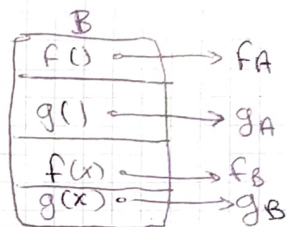 B
f() fA
g() gA
f(x) fB
g(x) gB